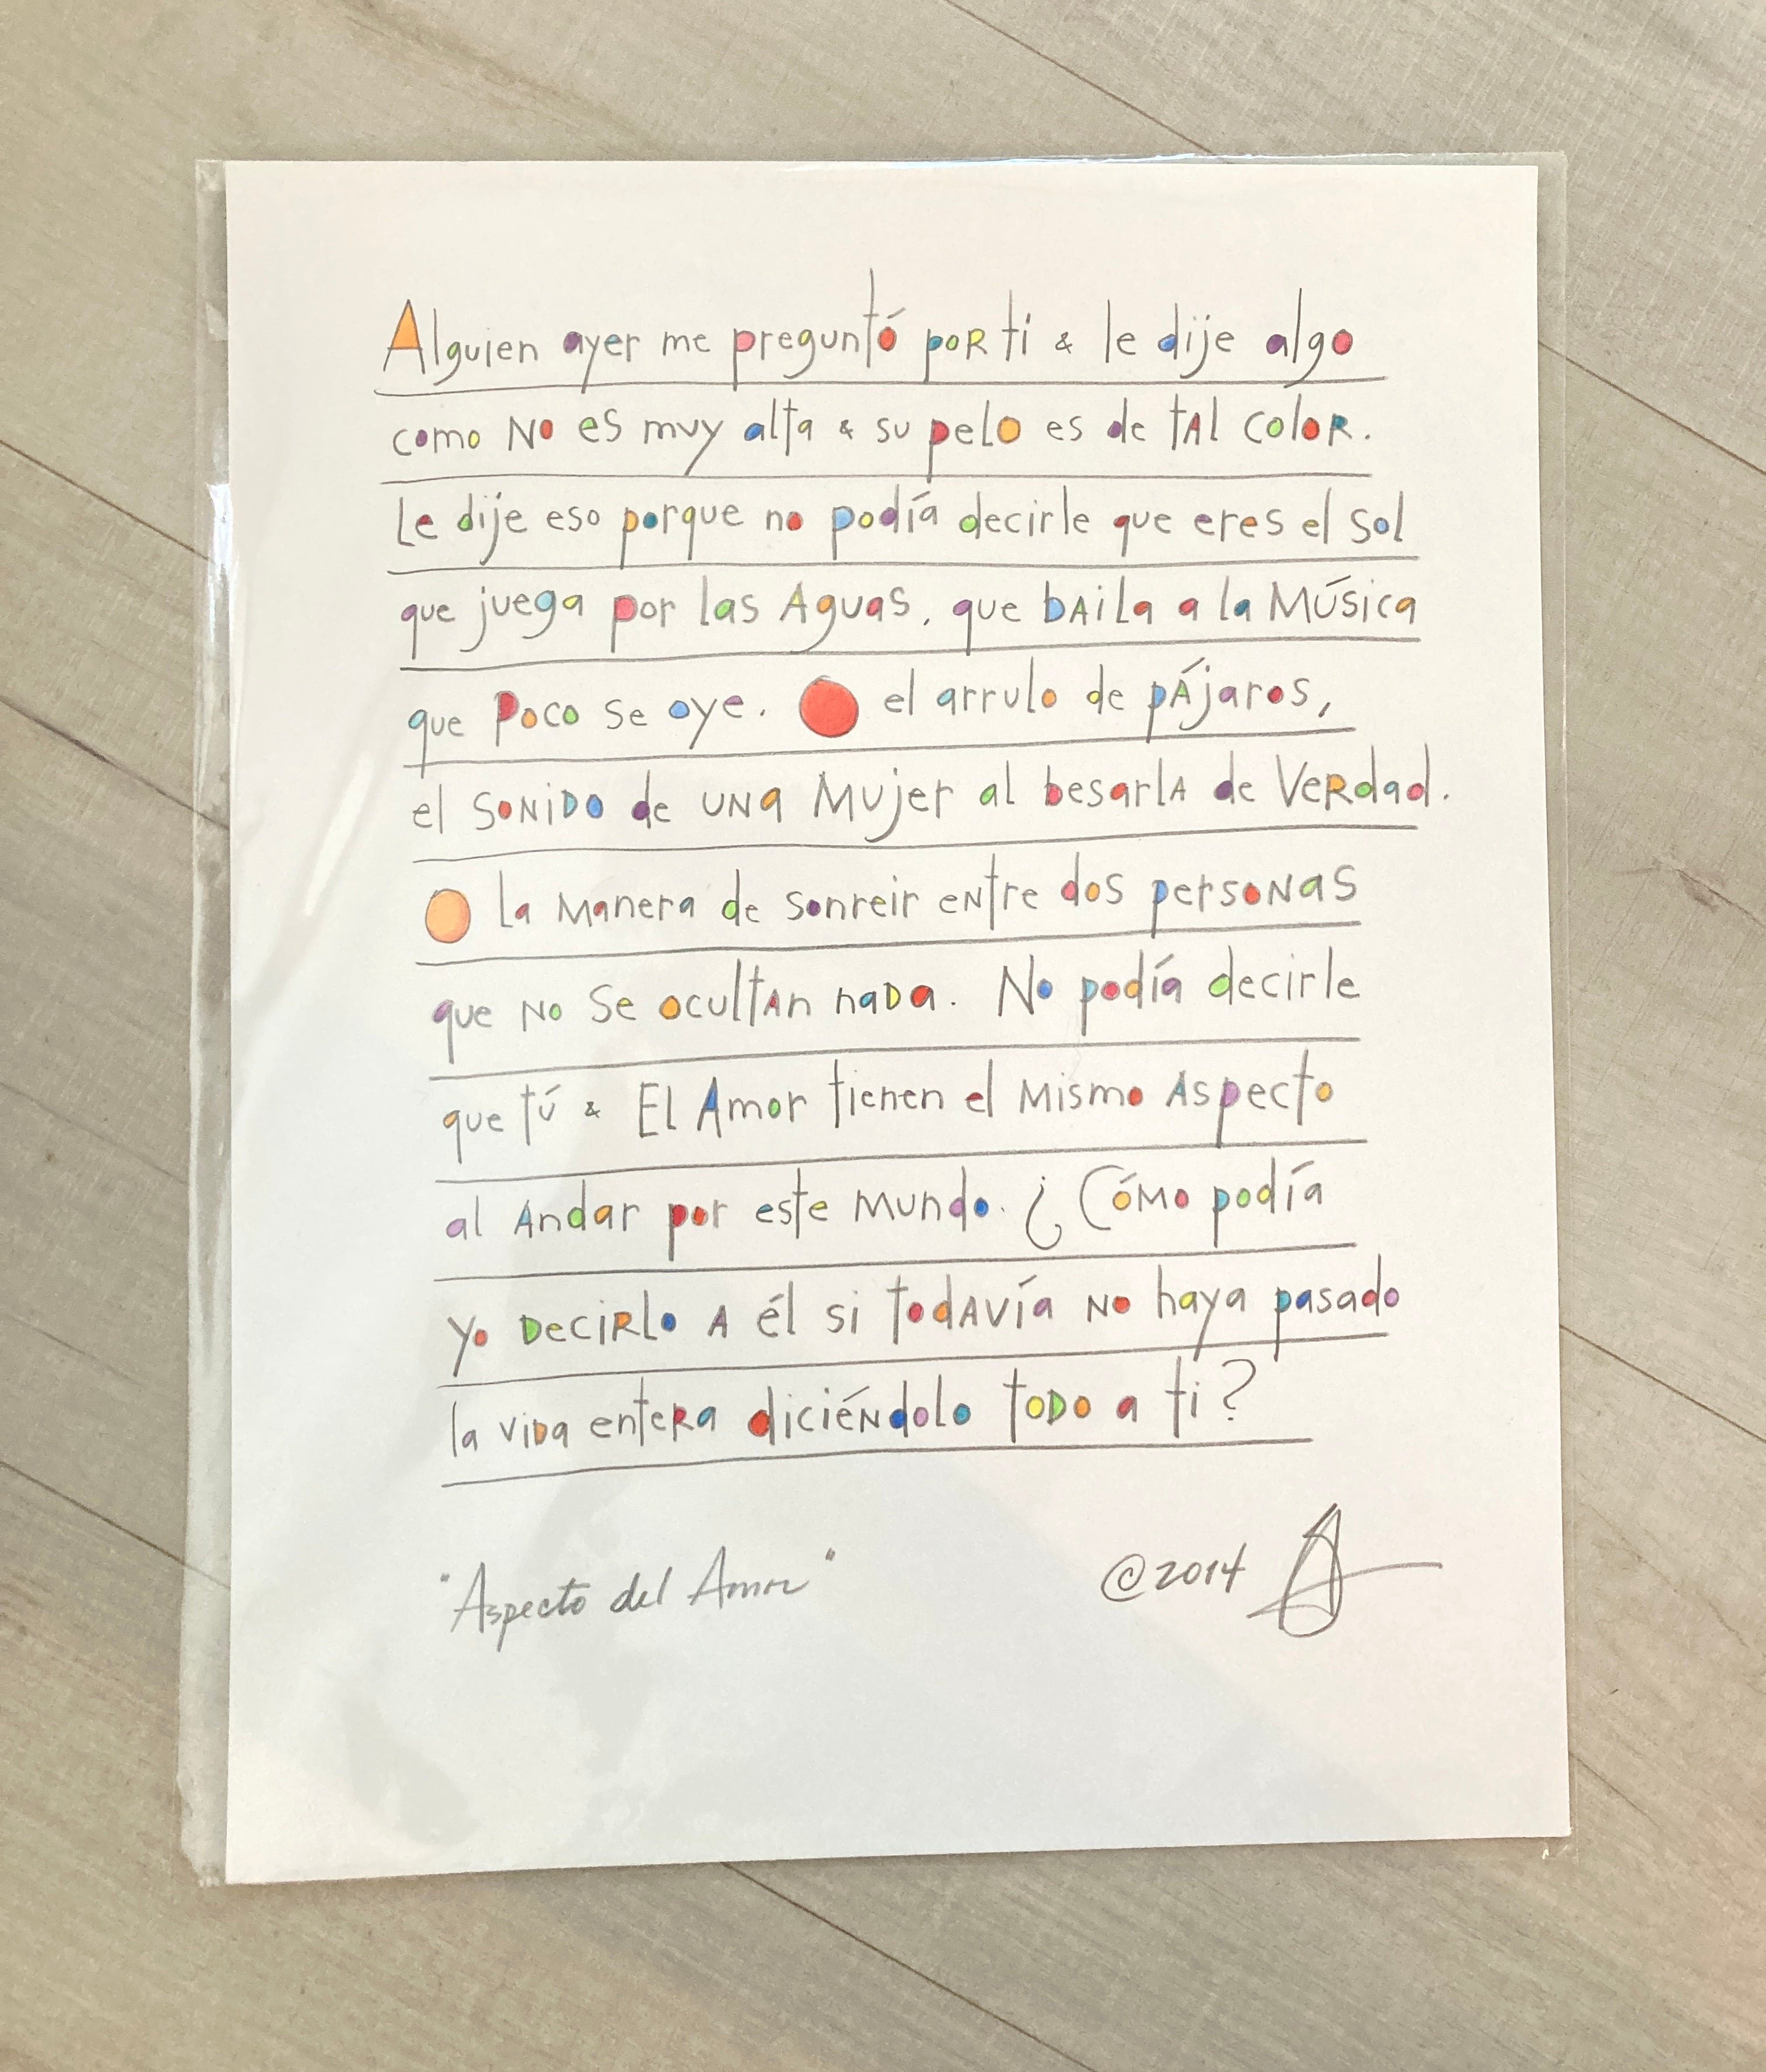 Alguien ayer me preguntó poR ti & le dije algo
como No es muy alta & su pelo es de tAl ColoR.
Le dije eso porque no podía decirle que eres el sol
que juega por las Aguas, que bAiLa a la MÚsica
que Poco se oye. O el arrulo de pÁjaros,
el SoNiDo de UNa Mujer al besarlA de VeRdad.
O La Manera de sonreir eNtre dos persoNas
que No Se ocultAn naDa. No podía decirle
que tú & El Amor tienen el Mismo Aspecto
al Andar por este Mundo. ¿CóMo podía
yo DeciRlo A él si todAVía No haya pasado
la ViDa enteRa diciéNdolo toDo a ti?
"Aspecto del Amor" ©2014